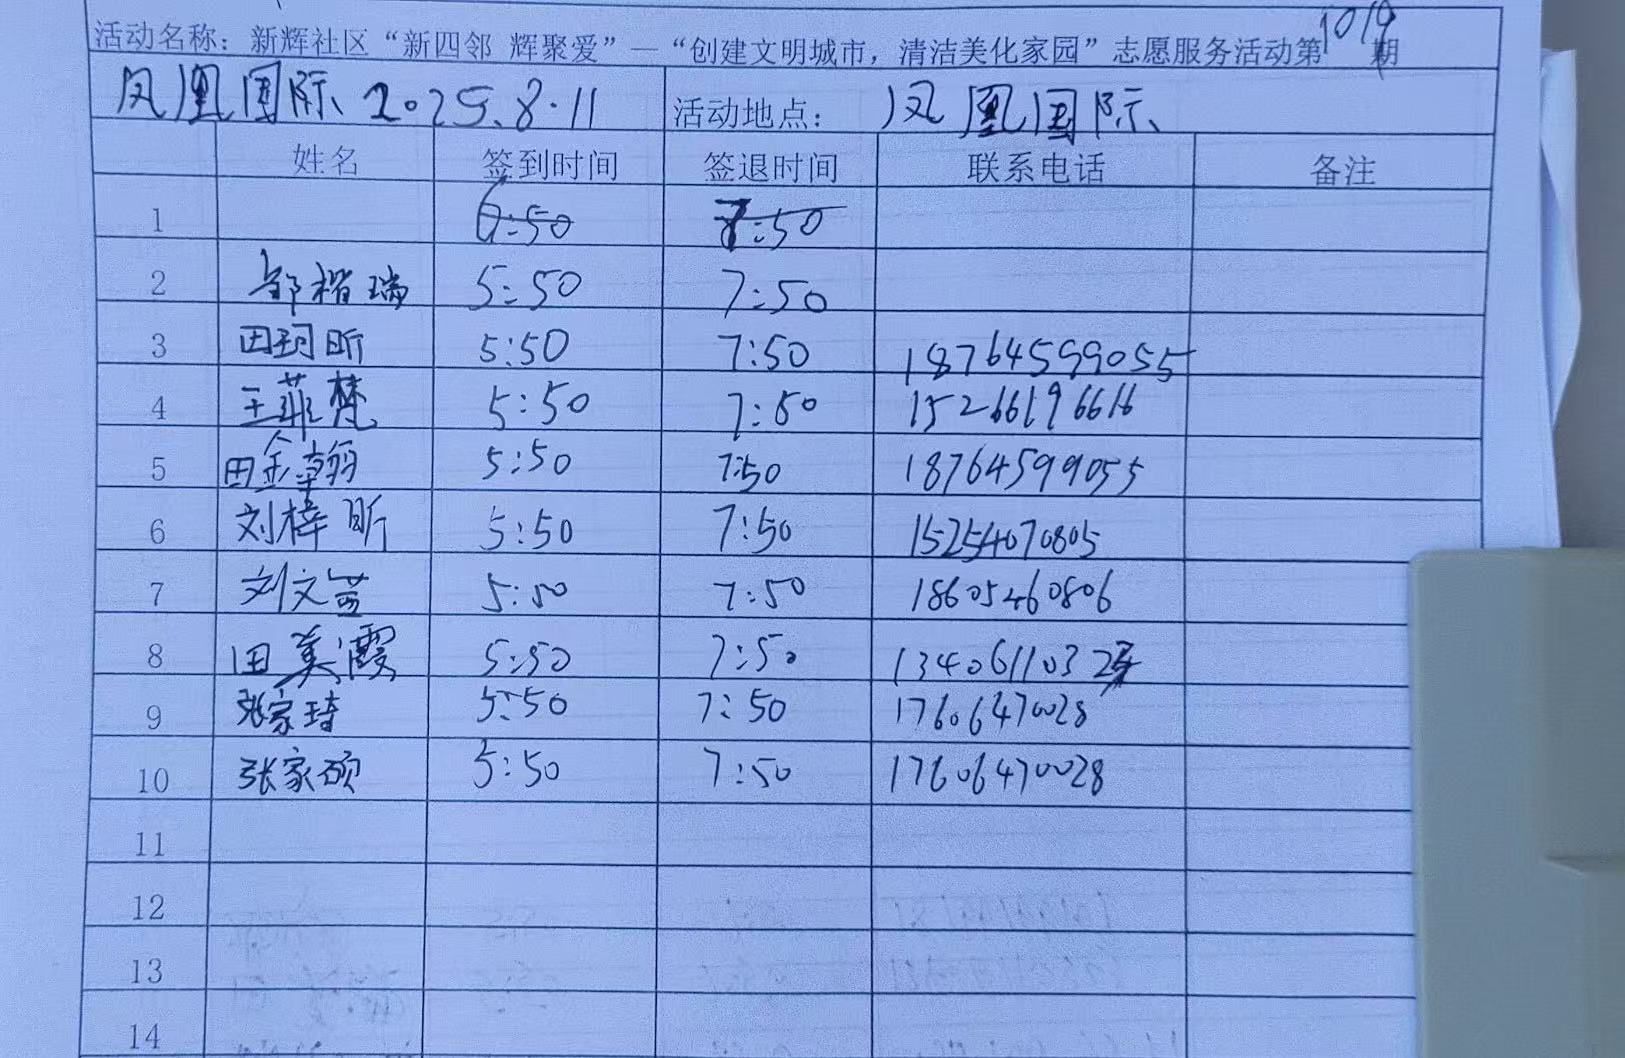 活动名称：新辉社区“新四邻 辉聚爱”—“创建文明城市，清洁美化家园”志愿服务活动第1019期
凤凰国际、2025.8.11 活动地点： 凤凰国际、
姓名 签到时间 签退时间 联系电话 备注
1 6:50 7:50
2 邹楷瑞 5:50 7:50
3 田珂昕 5:50 7:50 18764599055
4 王菲梵 5:50 7:50 15266196616
5 田金翰 5:50 7:50 18764599055
6 刘梓昕 5:50 7:50 15254070805
7 刘文 5:50 7:50 18605460806
8 田美霞 5:50 7:50
9 张家琦 5:50 7:50 17606470028
10 张家硕 5:50 7:50 17606470028
11
12
13
14